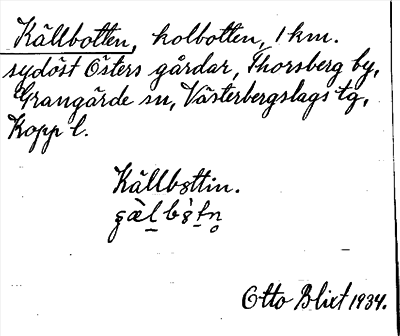 Källbotten, kolbotten, 1 km.
sydöst Östers gårdar, Thorsberg by,
Grangärde sn, Västerbergslags tg,
Kopp l.
Källbottin.
Otto Blixt 1934.